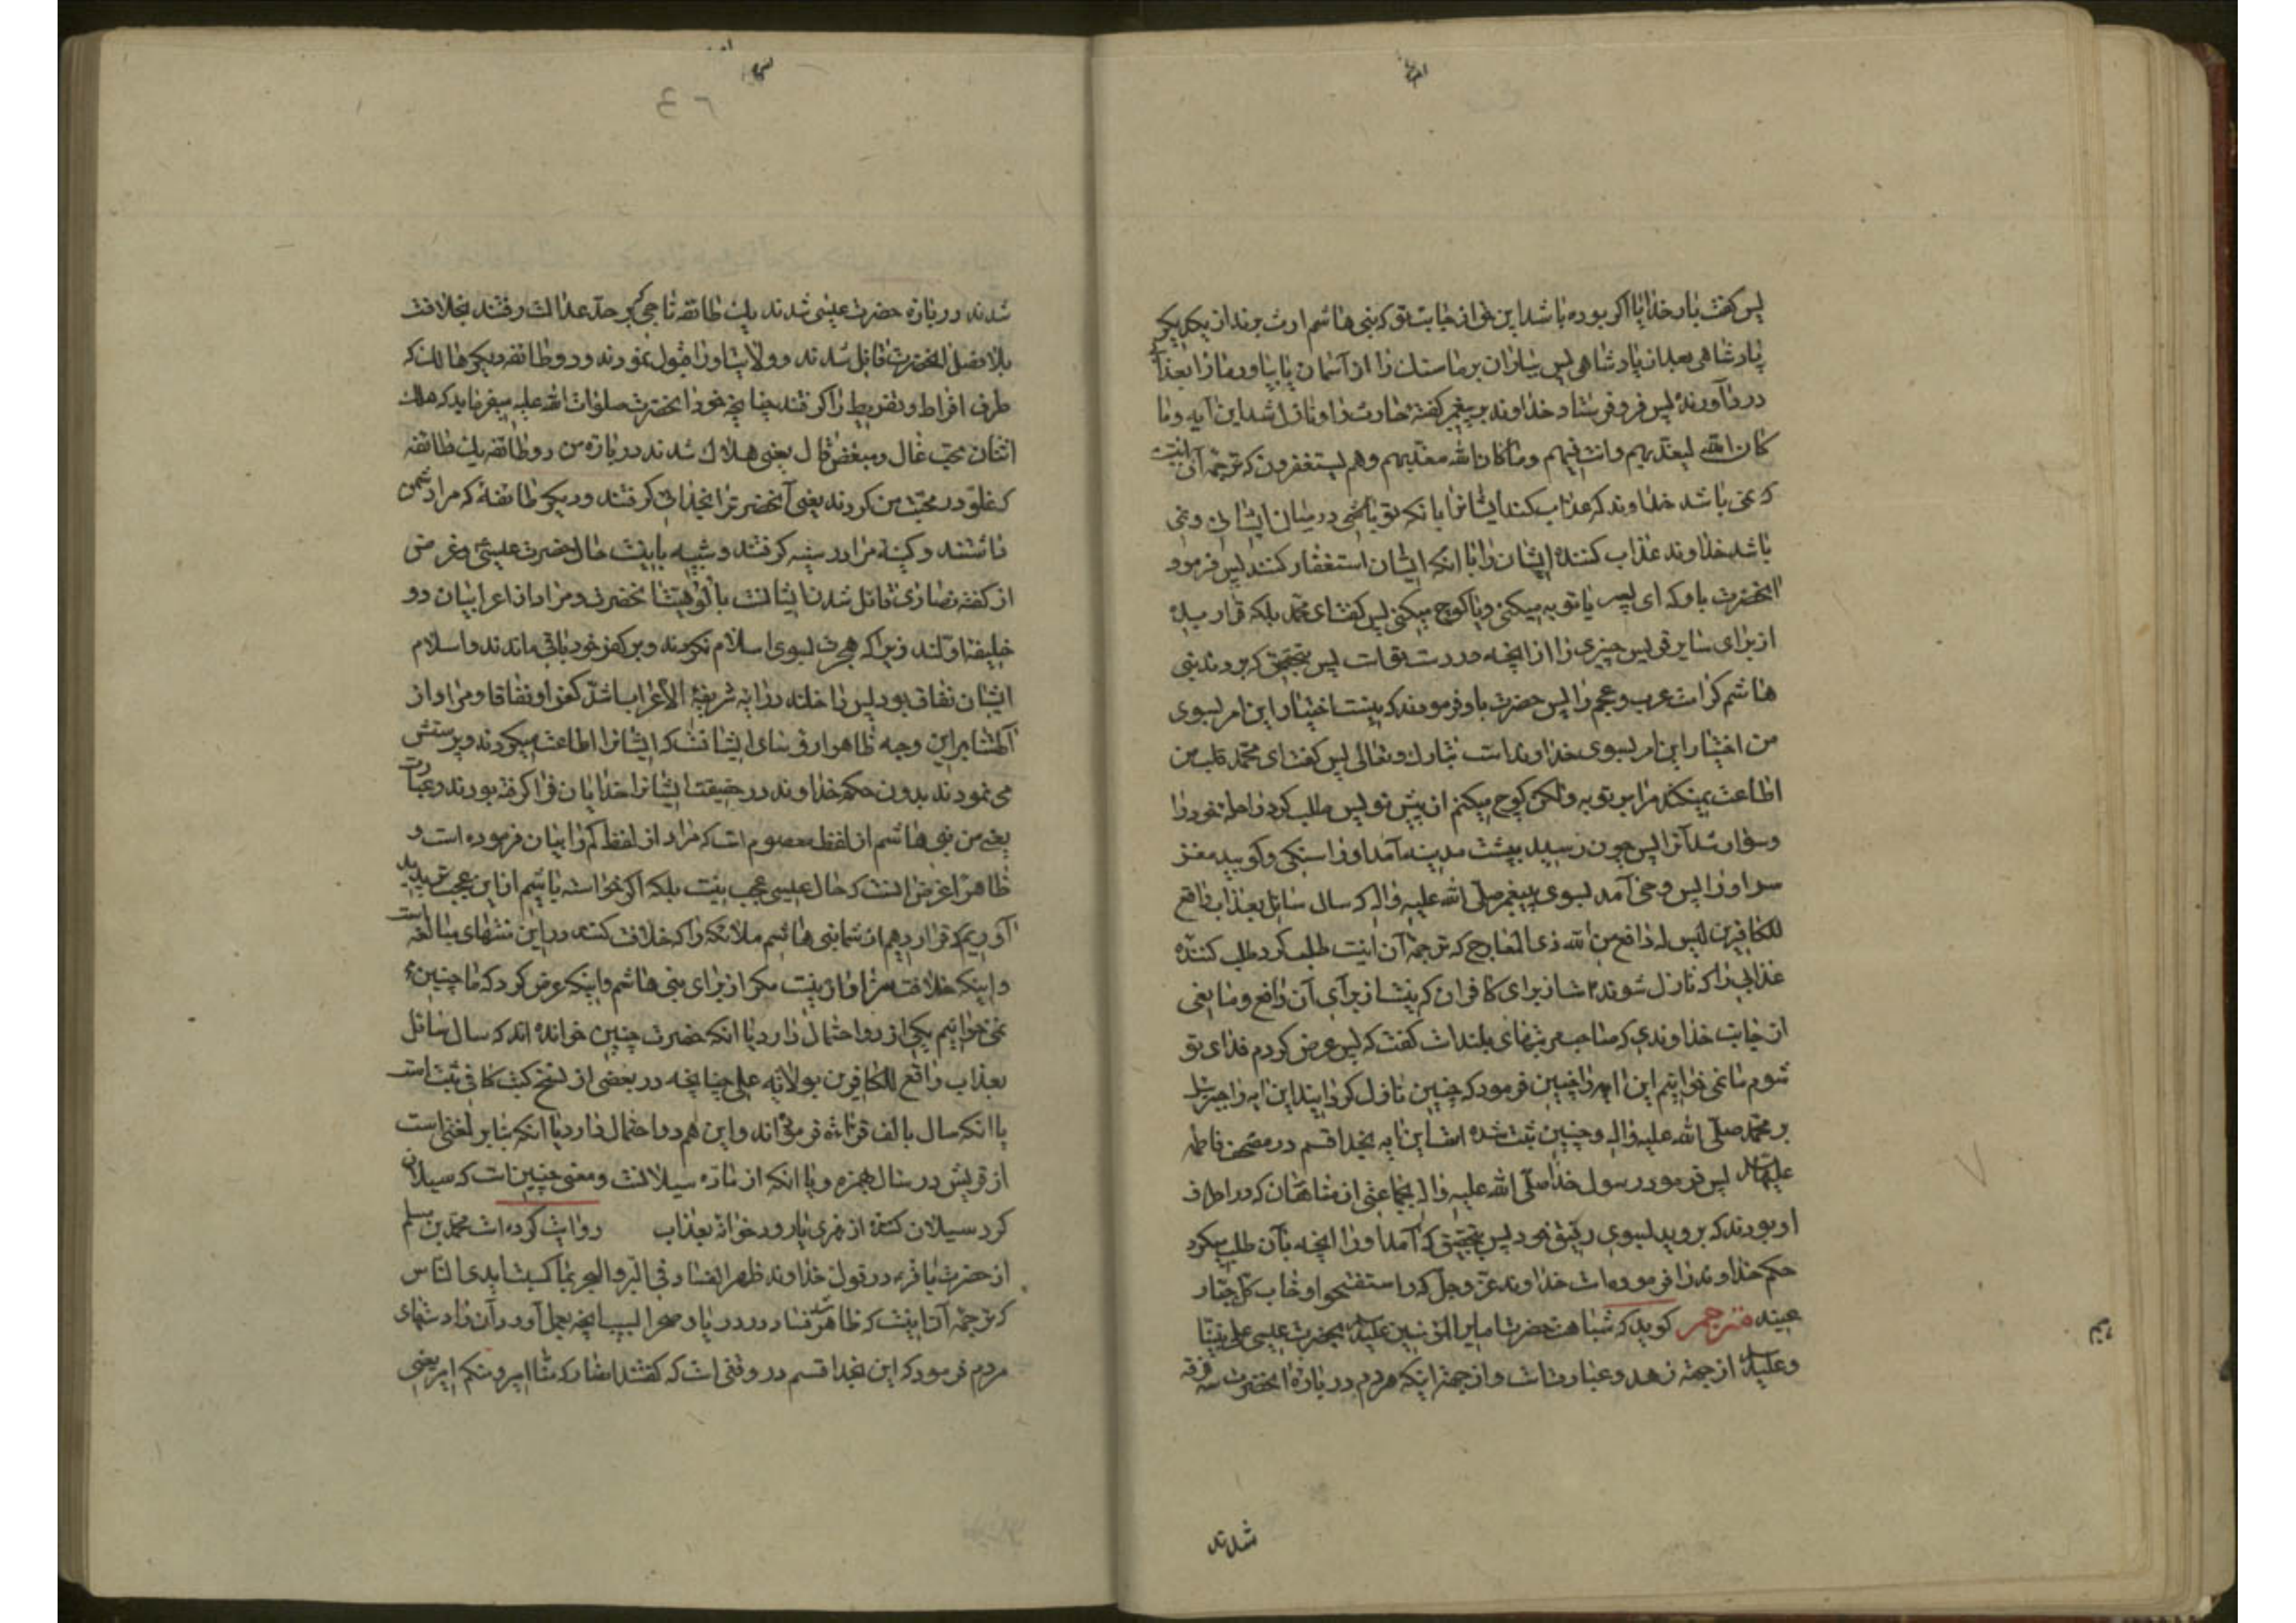 پس گفت بار خدایا اگر بوده باشد این حق از جانب تو که بنی هاشم ارث برند از یکدیگر
پادشاهی بعد از پادشاهی پس بباران بر ما سنک را از آسمان یا بیاور ما را بعذاب
درد آورنده پس فرو فرستاد خداوند بر پیغمبر کفتهٔ حارث را و نازل شد این آیه وما
کان الله لیعذبهم وانت فیهم وما کان الله معذبهم وهم یستغفرون که ترجمهٔ آن اینست
که نمی باشد خداوند که عذاب کند ایشانرا با انکه تو باشی در میان ایشان و نمی
باشد خداوند عذاب کننده ایشان را با انکه ایشان استغفار کنند پس فرمود
انحضرت باو که ای پسر یا توبه میکنی ویا کوچ میکنی پس کفت ای محمد بلکه قرار میده
از برای سایر قریش چیزی را از انچه در دست تو است پس بتحقیق که بردند بنی
هاشم کرامت عرب وعجم را پس حضرت باو فرمودند که نیست اختیار این امر بسوی
من اختیار این امر بسوی خداوند است تبارک وتعالی پس کفت ای محمد قلب من
اطاعت نمیکند مرا بر توبه ولکن کوچ میکنم از پیش تو پس طلب کرد راحلهٔ خود را
وسوار شد آنرا پس چون رسید بپشت مدینه آمد او را سنکی وکوبید مغز
سر او را پس وحی آمد بسوی پیغمبر صلی الله علیه واله که سال سائل بعذاب واقع
للکافرین لیس له دافع من الله ذی المعارج که ترجمهٔ آن اینست طلب کرد طلب کننده
عذابی را که نازل شونده است از برای کافران که نیست از برای آن دافع ومانعی
از جانب خداوندی که صاحب مرتبهای بلند است کفت که پس عرض کردم فدای تو
شوم ما نمی خوانیم این ایه را چنین فرمود که چنین نازل کردانید این ایه را جبرئیل
بر محمد صلی الله علیه واله وچنین ثبت شده است این ایه بخدا قسم در مصحف فاطمه
علیها السلام پس فرمود رسول خدا صلی الله علیه واله بجماعتی از منافقان که در اطراف
او بودند که بروید بسوی رفیق خود پس بتحقیق که آمد او را انچه بآن طلب میکرد
حکم خداوند را فرموده است خداوند عز وجل که واستفتحوا وخاب کل جبار
عنید مترجم کوید که شباهت حضرت امیر المؤمنین علیه السلام بحضرت عیسی علی نبینا
وعلیه السلام از جهة زهد وعبادتست واز جهة اینکه مردم در بارهٔ انحضرت سه فرقه
شدند
شدند در بارهٔ حضرت عیسی شدند یک طائفه ناجی که بر حد عدالت رفتند بخلافت
بلا فصل انحضرت قائل شدند وولایت او را قبول نمودند ودو طائفه دیکر هالک که
طرف افراط وتفریط را کرفتند چنانچه خود انحضرت صلوات الله علیه میفرماید که هلک
اثنان محب غال ومبغض قال یعنی هلاک شدند در بارهٔ من دو طائفه یک طائفه
که غلو در محبت من کردند یعنی آنحضرت را بخدائی کرفتند ودیکر طائفهٔ که مرا دشمن
داشتند وکینهٔ مرا در سینه کرفتند وشبیه باینست حال حضرت عیسی وغرض
از کفتهٔ نصاری قائل شدن ایشانست بالوهیت انحضرت ومراد از اعرابیان دو
خلیفه اولند زیرا که هجرت بسوی اسلام نکردند وبر کفر خود باقی ماندند واسلام
ایشان نفاق بود پس داخلند در ایه شریفهٔ الاعراب اشد کفرا ونفاقا ومراد از
آلهتنا بر این وجه ظاهرا رؤسای ایشانست که ایشانرا اطاعت میکردند وپرستش
می نمودند بدون حکم خداوند در حقیقت ایشانرا خدایان فرا کرفته بودند وعبارت
یعنی من بنی هاشم از لفظ معصوم است که مراد از لفظ کم را بیان فرموده است و
ظاهرا غرض انست که حال عیسی عجب نیست بلکه اکر خواسته باشیم از این عجب تر پدید
آوریم که قرار دهیم از شما بنی هاشم ملائکه را که خلافت کنند ودر این منتهای مبالغه است
واینکه خلافت سزاوار نیست مکر از برای بنی هاشم واینکه عرض کرد که ما چنین
نمی خوانیم یکی از دو احتمال دارد یا انکه حضرت چنین خوانده اند که سال سائل
بعذاب واقع للکافرین بولایة علی چنانچه در بعضی از نسخ کتب کافی ثبت است
یا انکه سال بالف قرائة فرموده اند واین هم دو احتمال دارد یا انکه بنابر لغتی است
از قریش در سال همزه ویا انکه از مادهٔ سیلانست ومعنی چنین است که سیلان
کرد سیلان کننده از نهری یا رودخانه بعذاب روایت کرده است محمد بن مسلم
از حضرت باقر در قول خداوند ظهر الفساد فی البر والبحر بما کسبت ایدی الناس
که ترجمهٔ آن اینست که ظاهر شد فساد در دریا وصحرا بسبب انچه بعمل آورد آن را دستهای
مردم فرمود که این بخدا قسم در وقتی است که کفتند انصار که منا امیر ومنکم امیر یعنی